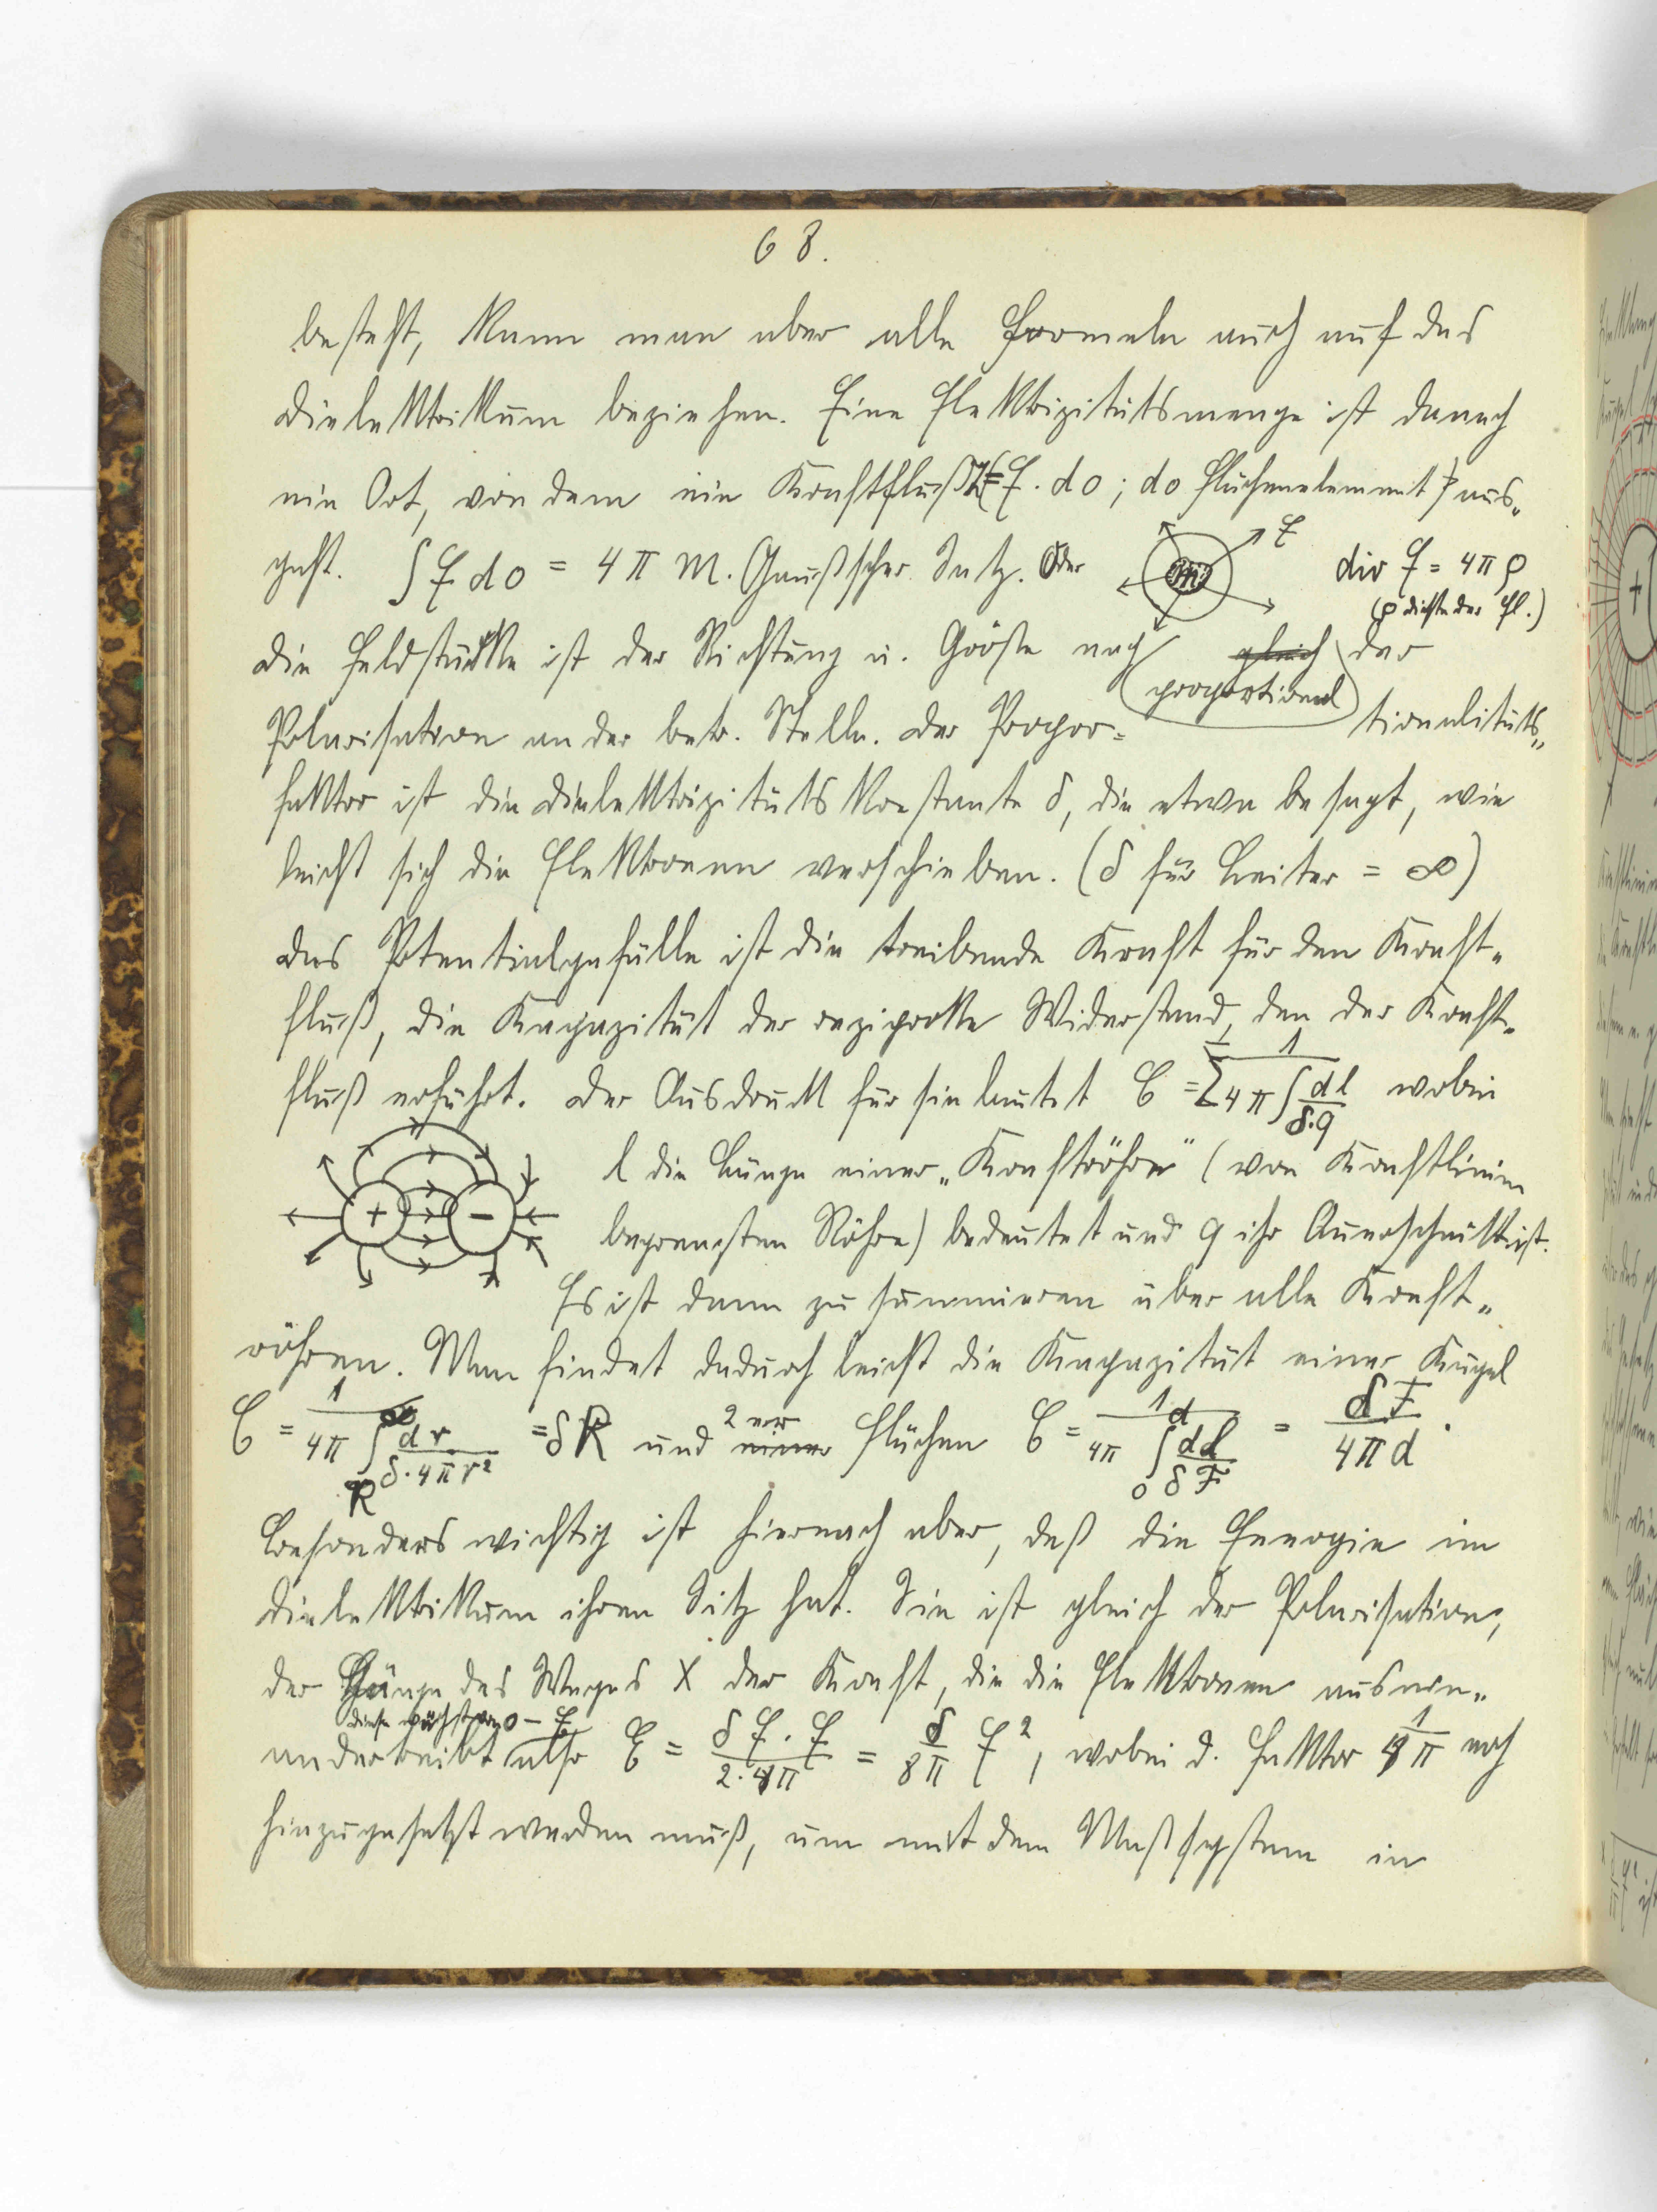 68.
besteht, kann man aber alle Formeln auch auf das
Dielektrikum beziehen. Eine Elektrizitätsmenge ist danach
ein Ort, von dem ein Kraftfluß (= F. do; do Flächenelement) aus„
geht. ∫ F do = 4 π m. Gaußscher Satz. Oder
F
m
div F = 4 π ρ
(ρ Dichte der El.)
Die Feldstärke ist der Richtung u. Größe nach gleich der
proportional
Polarisation an der betr. Stelle. Der Propor= tionalitäts„
faktor ist die Dielektrizitätskonstante δ, die etwa besagt, wie
leicht sich die Elektronen verschieben. (δ für Leiter = ∞)
Das Potentialgefälle ist die treibende Kraft für den Kraft„
fluß, die Kapazität der reziproke Widerstand, den der Kraft„
fluß erfährt. Der Ausdruck für sie lautet C = Σ 1 / 4 π ∫ dl / δ.q wobei
+ −
l die Länge einer „Kraftröhre" (von Kraftlinien
begrenzten Röhre) bedeutet und q ihr Querschnitt ist.
Es ist dann zu summieren über alle Kraft„
röhren. Man findet dadurch leicht die Kapazität einer Kugel
C = 1 / 4π ∫_R^∞ dr / δ.4πr² = δR und einer 2 er Flächen C = 1 / 4π ∫_0^d dl / δF = δF / 4πd.
Besonders wichtig ist hiernach aber, daß die Energie im
Dielektrikum ihren Sitz hat. Sie ist gleich der Polarisation,
der Länge des Weges X der Kraft, die die Elektronen ausein„
diese wächst von 0 – F
andertreibt also E = δ F. F / 2. 4π = δ / 8π F², wobei d. Faktor 1 / 4π noch
hinzugesetzt werden muß, um mit dem Maßsystem in